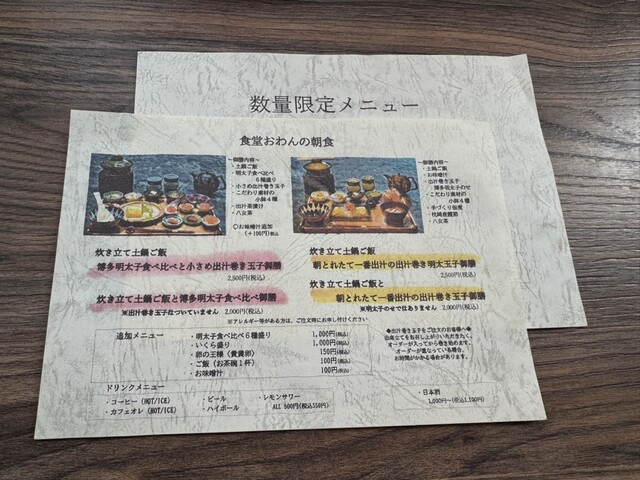 数量限定メニュー
食堂おわんの朝食
～御膳内容～
・土鍋ご飯
・明太子食べ比べ
6種盛り
・小さめ出汁巻き玉子
・こだわり素材の
小鉢4種
・出汁茶漬け
・八女茶
○お味噌汁追加
(+100円)税込
～御膳内容～
・土鍋ご飯
・お味噌汁
・出汁巻き玉子
博多明太子のせ
・こだわり素材の
小鉢4種
・手づくり佃煮
・枕崎鰹節
・八女茶
炊き立て土鍋ご飯
博多明太子食べ比べと小さめ出汁巻き玉子御膳
2,500円(税込)
炊き立て土鍋ご飯と博多明太子食べ比べ御膳
※出汁巻き玉子はついていません 2,000円(税込)
炊き立て土鍋ご飯
朝とれたて一番出汁の出汁巻き明太玉子御膳
2,500円(税込)
炊き立て土鍋ご飯と
朝とれたて一番出汁の出汁巻き玉子御膳
※明太子のせではありません 2,000円(税込)
※アレルギー等がある方は、ご注文時にお申し付けください
追加メニュー
・明太子食べ比べ6種盛り 1,000円(税込)
・いくら盛り 1,000円(税込)
・卵の王様(貴黄卵) 150円(税込)
・ご飯(お茶碗1杯) 100円(税込)
・お味噌汁 100円(税込)
◆出汁巻き玉子をご注文のお客様へ◆
出来立てをお召し上がりいただきたく、
オーダーが入ってから巻き始めます
オーダーが重なっている場合、
お時間がかかる場合があります。
ドリンクメニュー
・コーヒー(HOT/ICE)
・カフェオレ(HOT/ICE)
・ビール
・ハイボール
・レモンサワー
ALL 500円(税込550円)
・日本酒
1,000円～(税込1,100円)